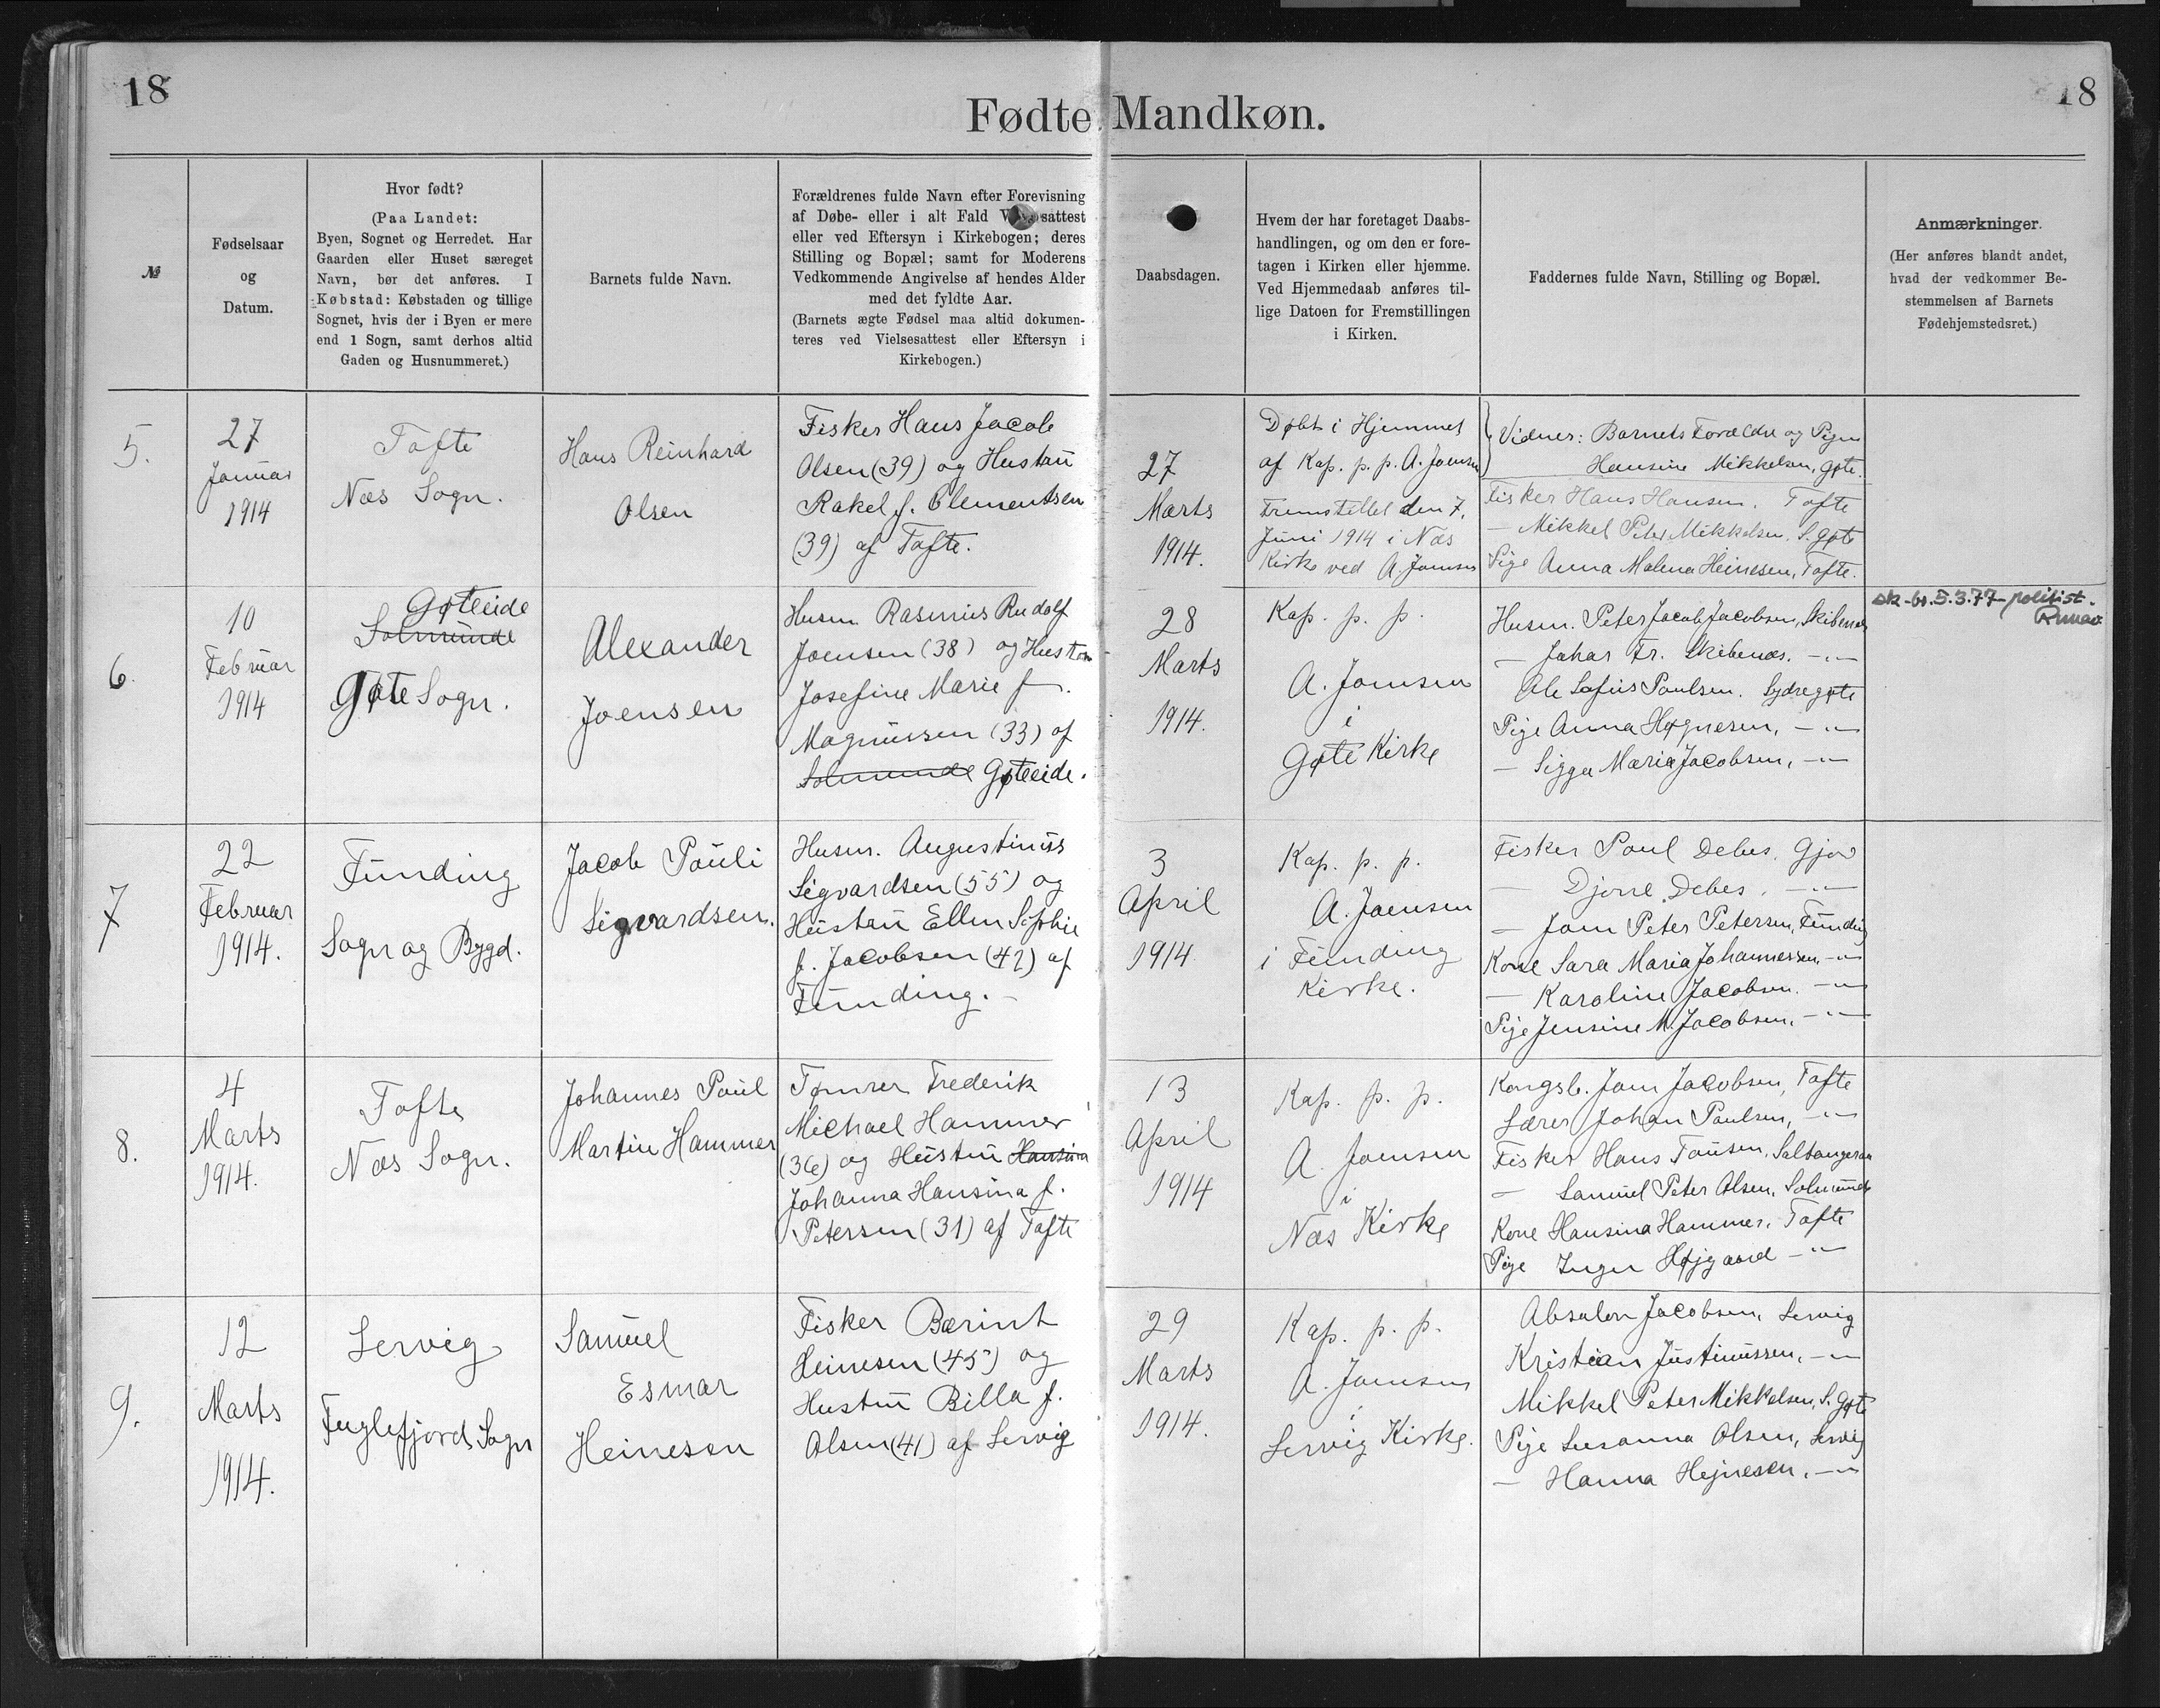 18
18
Fødte Mandkøn.
№
Fødselsaar
og
Datum.
Hvor født?
(Paa Landet:
Byen, Sognet og Herredet. Har
Gaarden eller Huset særeget
Navn, bør det anføres. I
Købstad: Købstaden og tillige
Sognet, hvis der i Byen er mere
end 1 Sogn, samt derhos altid
Gaden og Husnummeret.)
Barnets fulde Navn.
Forældrenes fulde Navn efter Forevisning
af Døbe- eller i alt Fald Vielsesattest
eller ved Eftersyn i Kirkebogen; deres
Stilling og Bopæl; samt for Moderens
Vedkommende Angivelse af hendes Alder
med det fyldte Aar.
(Barnets ægte Fødsel maa altid dokumen-
teres ved Vielsesattest eller Eftersyn i
Kirkebogen.)
Daabsdagen.
Hvem der har foretaget Daabs-
handlingen, og om den er fore-
tagen i Kirken eller hjemme.
Ved Hjemmedaab anføres til-
lige Datoen for Fremstillingen
i Kirken.
Faddernes fulde Navn, Stilling og Bopæl.
Anmærkninger.
(Her anføres blandt andet,
hvad der vedkommer Be-
stemmelsen af Barnets
Fødehjemstedsret.)
5.
27
Januar
1914
Tofte
Næs Sogn.
Hans Reinhard
Olsen
Fisker Hans Jacob
Olsen (39) og Hustru
Rakel f. Clementsen
(39) af Tofte.
27
Marts
1914.
Døbt i Hjemmet
af Kap. p. p. A. Joensen
Fremstillet den 7.
Juni 1914 i Næs
Kirke ved A. Joensen
Vidner: Barnets Forældre og Pigen
Hansine Mikkelsen, Gøte.
Fisker Hans Hansen. Tofte
— Mikkel Peter Mikkelsen. S. Gøte
Pige Anna Malena Heinesen, Tofte.
6.
10
Februar
1914
Gøteeide
Solmunde
Gøte Sogn.
Alexander
Joensen
Husm. Rasmus Rudolf
Joensen (38) og Hustru
Josefine Marie f.
Magnussen (33) af
Solmunde Gøteeide.
28
Marts
1914.
Kap. p. p.
A. Joensen
i
Gøte Kirke
Husm. Peter Jacob Jacobsen, Skibenæs
— Jahar Fr. Skibenæs. —"—
Ole Sofus Poulsen. Sydregøte
Pige Anna Høgnesen, —"—
— Sigga Maria Jacobsen, —"—
5.3.77
7
22
Februar
1914.
Funding
Sogn og Bygd.
Jacob Pauli
Sigvardsen.
Husm. Augustinus
Sigvardsen (55) og
Hustru Ellen Sophie
f. Jacobsen (42) af
Funding.
3
April
1914
Kap. p. p.
A. Joensen
i Funding
Kirke.
Fisker Poul Debes, Gjov
— Djone Debes. —"—
— Joen Peter Petersen, Funding
Kone Sara Maria Johannessen, —"—
— Karoline Jacobsen. —"—
Pige Jensine M. Jacobsen. —"—
8.
4
Marts
1914.
Tofte
Næs Sogn.
Johannes Poul
Martin Hammer
Tømrer Frederik
Michael Hammer
(36) og Hustru Hansina
Johanna Hansina f.
Petersen (31) af Tofte
13
April
1914
Kap. p. p.
A. Joensen
i
Næs Kirke
Kongsb. Joen Jacobsen, Tofte
Lærer Johan Poulsen, —"—
Fisker Hans Tausen, Saltangeraa
— Samuel Peter Olsen, Solmunde
Kone Hansina Hammer, Tofte
Pige Inger Højgaard —"—
9.
12
Marts
1914.
Lervig
Fuglefjords Sogn
Samuel
Esmar
Heinesen
Fisker Bærint
Heinesen (45) og
Hustru Billa f.
Olsen (41) af Lervig
29
Marts
1914.
Kap. p. p.
A. Joensen
i
Lervig Kirke.
Absalon Jacobsen, Lervig
Kristian Justinussen, —"—
Mikkel Peter Mikkelsen, S. Gøte
Pige Susanna Olsen, Lervig
— Hanna Hejnesen, —"—